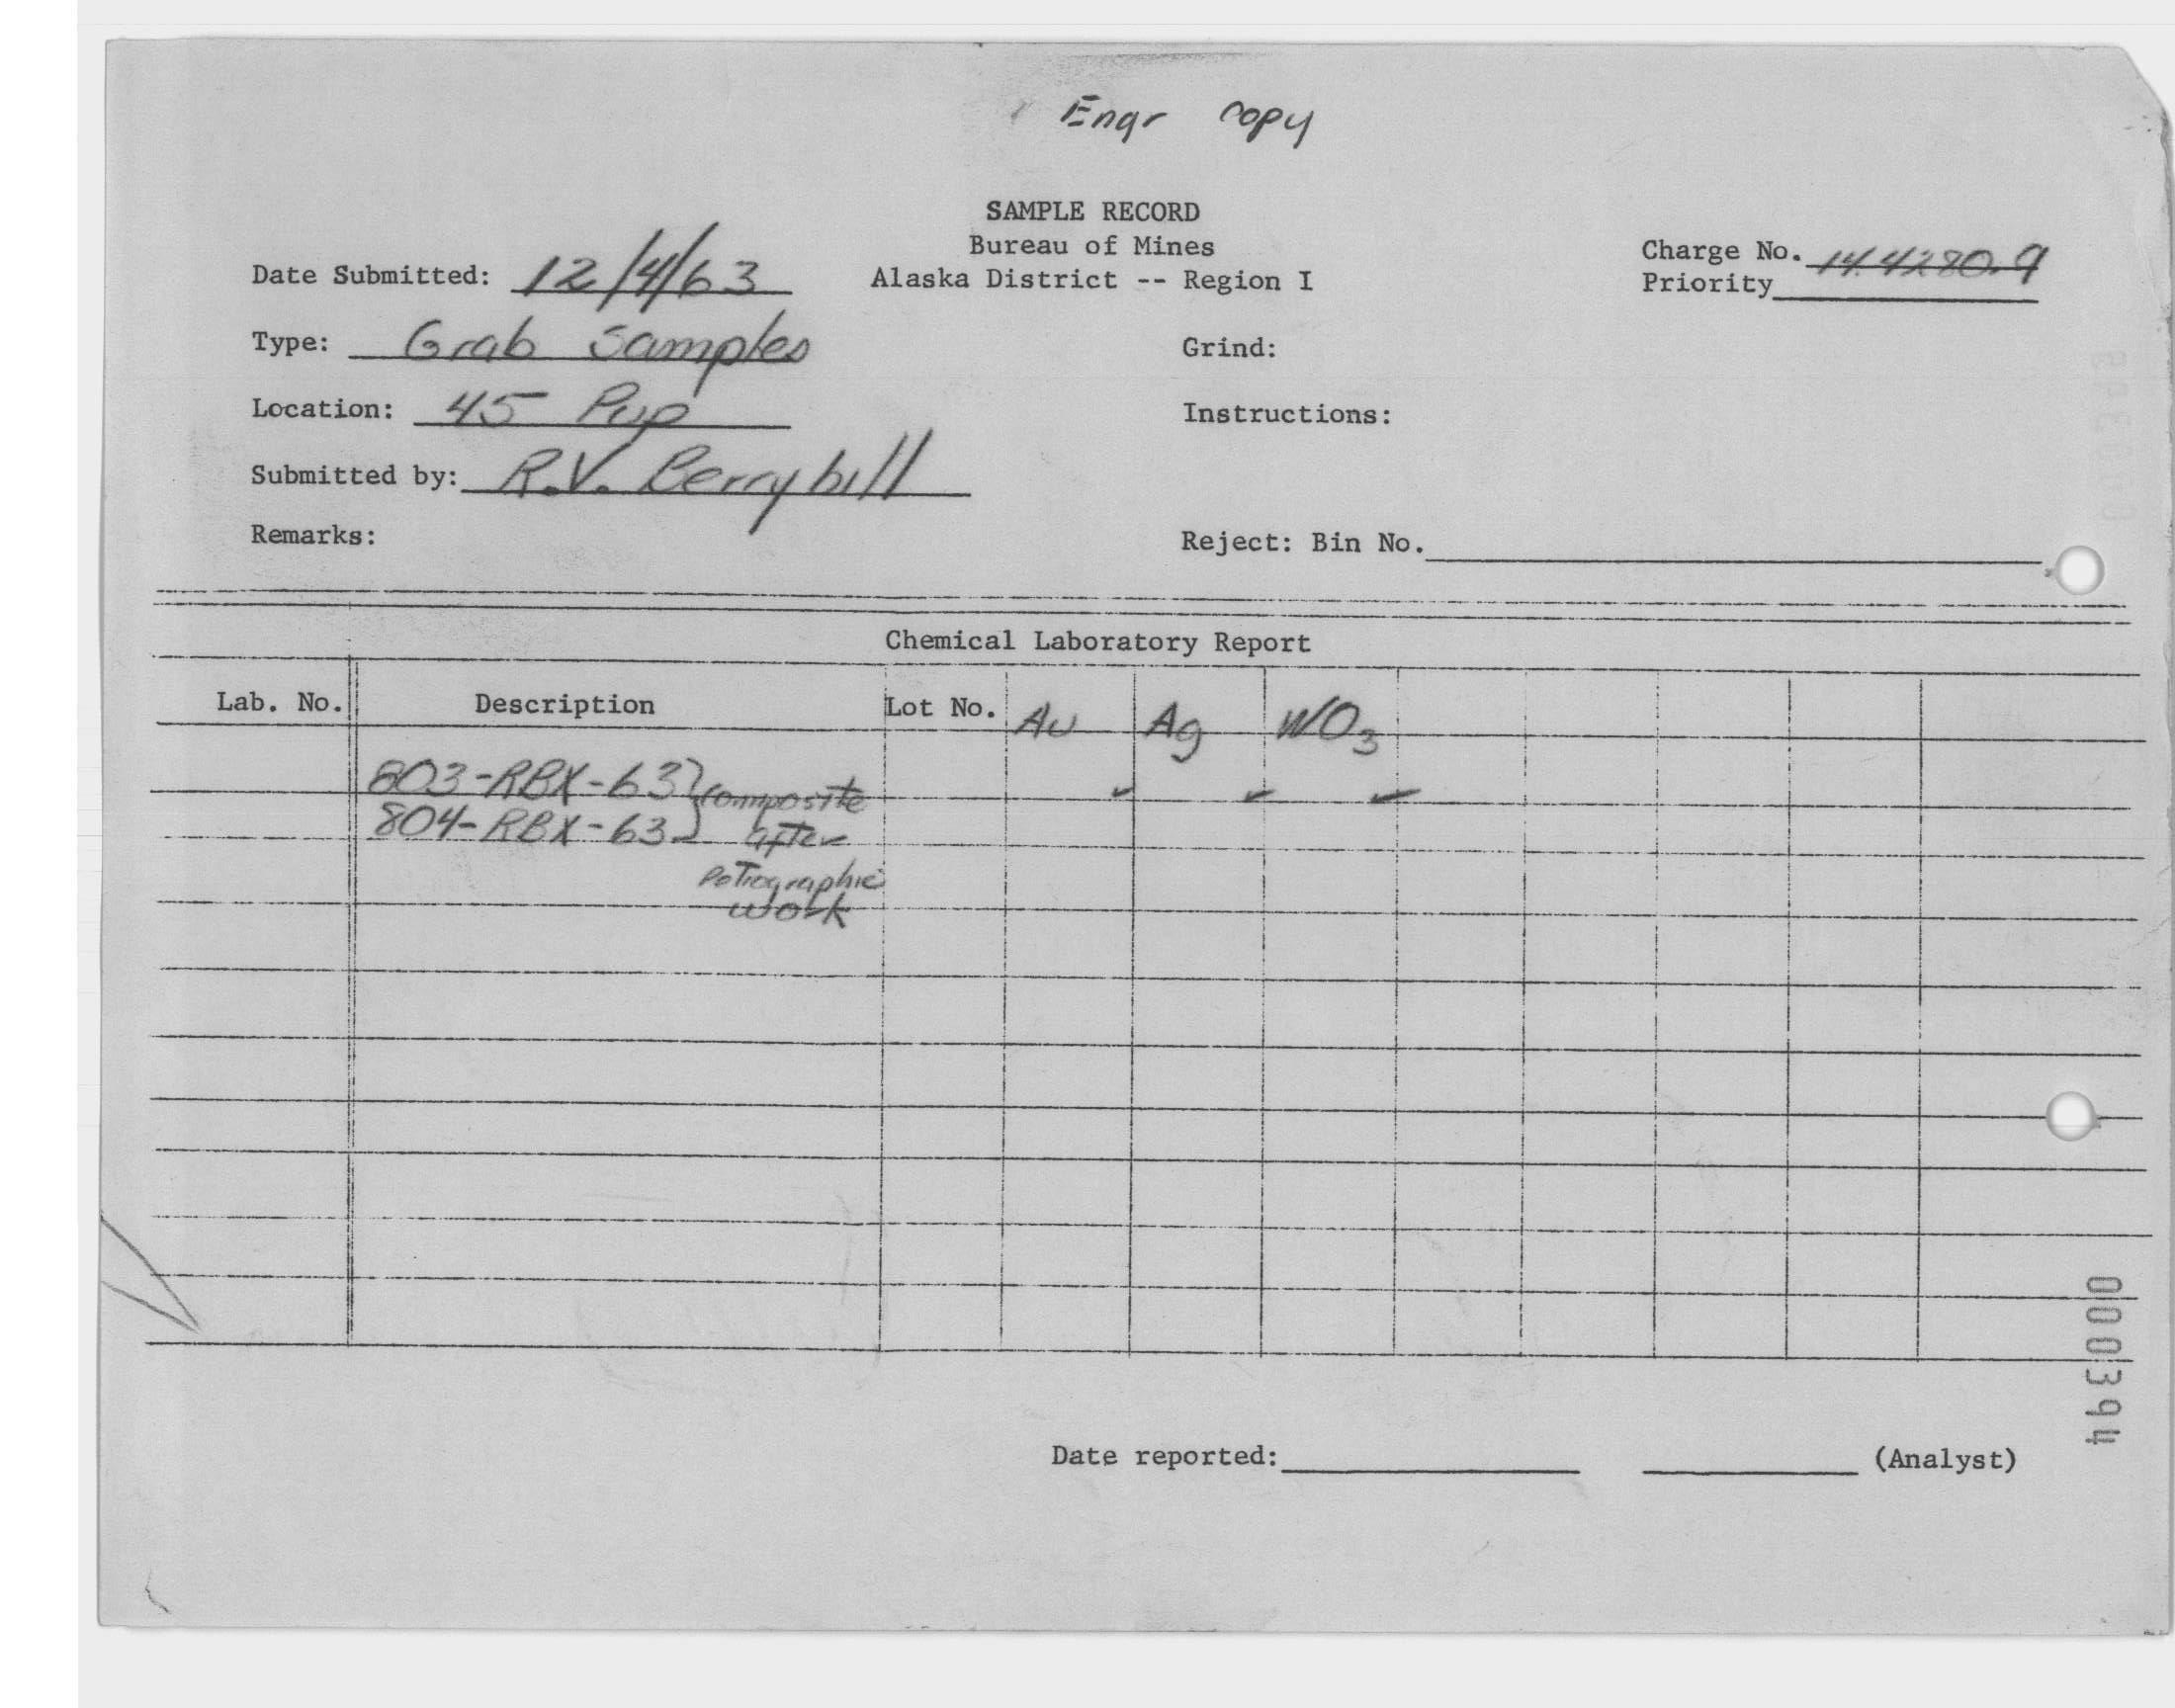 Engr copy
SAMPLE RECORD
Bureau of Mines
Alaska District -- Region I
Date Submitted: 12/4/63
Charge No. 14.4280.9
Priority
Type: Grab Samples
Grind:
Location: 45 Pup
Instructions:
Submitted by: R.V. Berryhill
Remarks:
Reject: Bin No.
Chemical Laboratory Report
Lab. No. Description Lot No. Au Ag WO3
803-RBX-63 } composite ✓ ✓ ✓
804-RBX-63 } after
Petrographic
work
Date reported: (Analyst)
000394